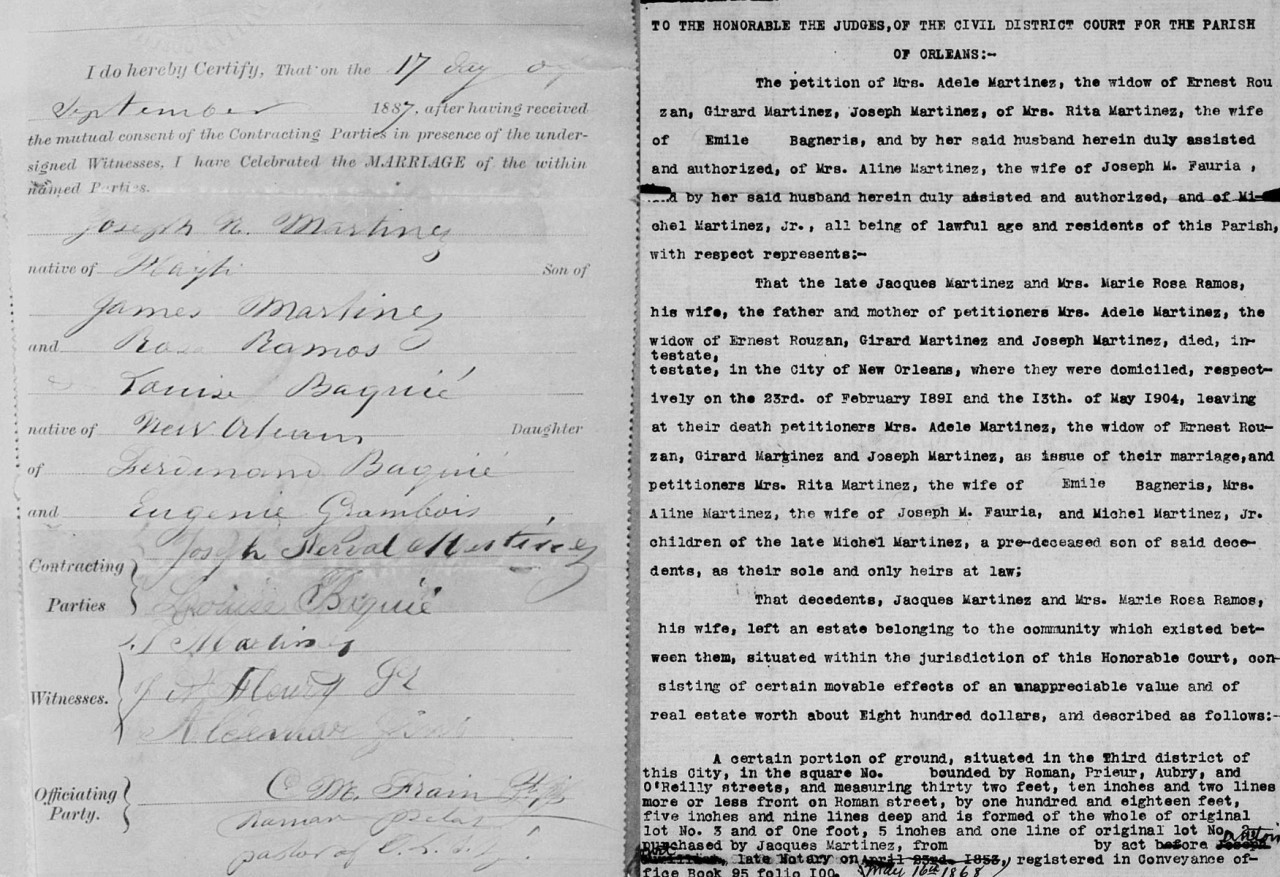 I do hereby Certify, That on the 17 day of
September 1887, after having received
the mutual consent of the Contracting Parties in presence of the under-
signed Witnesses, I have Celebrated the MARRIAGE of the within
named Parties.
Joseph N. Martinez
native of Hayti Son of
James Martinez
and Rosa Ramos
Louise Baquié
native of New Orleans Daughter
of Ferdinand Baquié
and Eugenie Grambois
Contracting Parties
Joseph Nerval Martinez
Louise Baquié
Witnesses.
Martinez
Fleury Jr
Officiating Party.
C. M. Frain
Roman
pastor of
TO THE HONORABLE THE JUDGES,OF THE CIVIL DISTRICT COURT FOR THE PARISH
OF ORLEANS:-
The petition of Mrs. Adele Martinez, the widow of Ernest Rou
zan, Girard Martinez, Joseph Martinez, of Mrs. Rita Martinez, the wife
of Emile Bagneris, and by her said husband herein duly assisted
and authorized, of Mrs. Aline Martinez, the wife of Joseph M. Fauria ,
and by her said husband herein duly assisted and authorized, and of Mi-
chel Martinez, Jr., all being of lawful age and residents of this Parish,
with respect represents:-
That the late Jacques Martinez and Mrs. Marie Rosa Ramos,
his wife, the father and mother of petitioners Mrs. Adele Martinez, the
widow of Ernest Rouzan, Girard Martinez and Joseph Martinez, died, in-
testate,
testate, in the City of New Orleans, where they were domiciled, respect-
ively on the 23rd. of February I89I and the I3th. of May I904, leaving
at their death petitioners Mrs. Adele Martinez, the widow of Ernest Rou-
zan, Girard Martinez and Joseph Martinez, as issue of their marriage,and
petitioners Mrs. Rita Martinez, the wife of Emile Bagneris, Mrs.
Aline Martinez, the wife of Joseph M. Fauria, and Michel Martinez, Jr.
children of the late Michel Martinez, a pre-deceased son of said dece-
dents, as their sole and only heirs at law;
That decedents, Jacques Martinez and Mrs. Marie Rosa Ramos,
his wife, left an estate belonging to the community which existed bet-
ween them, situated within the jurisdiction of this Honorable Court, con
sisting of certain movable effects of an unappreciable value and of
real estate worth about Eight hundred dollars, and described as follows:-
A certain portion of ground, situated in the Third district of
this City, in the square No. bounded by Roman, Prieur, Aubry, and
O'Reilly streets, and measuring thirty two feet, ten inches and two lines
more or less front on Roman street, by one hundred and eighteen feet,
five inches and nine lines deep and is formed of the whole of original
lot No. 3 and of One foot, 5 inches and one line of original lot No
purchased by Jacques Martinez, from by act before Joseph
late Notary on April 23rd. 1853, registered in Conveyance of-
fice Book 95 folio I00. May 16th 1868